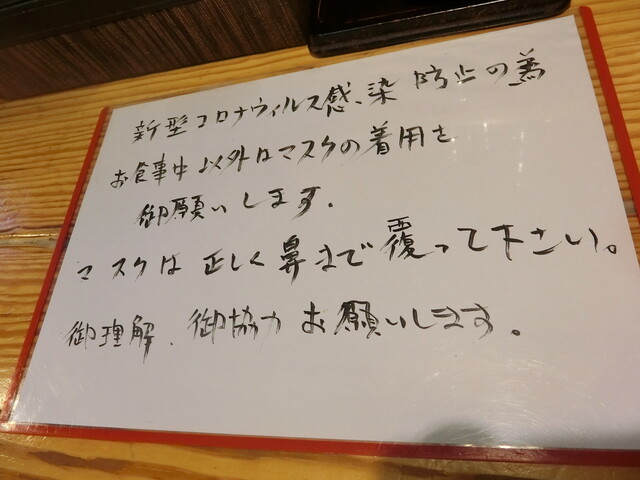 新型コロナウィルス感染防止の為
お食事中以外はマスクの着用を
御願いします.
マスクは正しく鼻まで覆って下さい。
御理解、御協力お願いします。